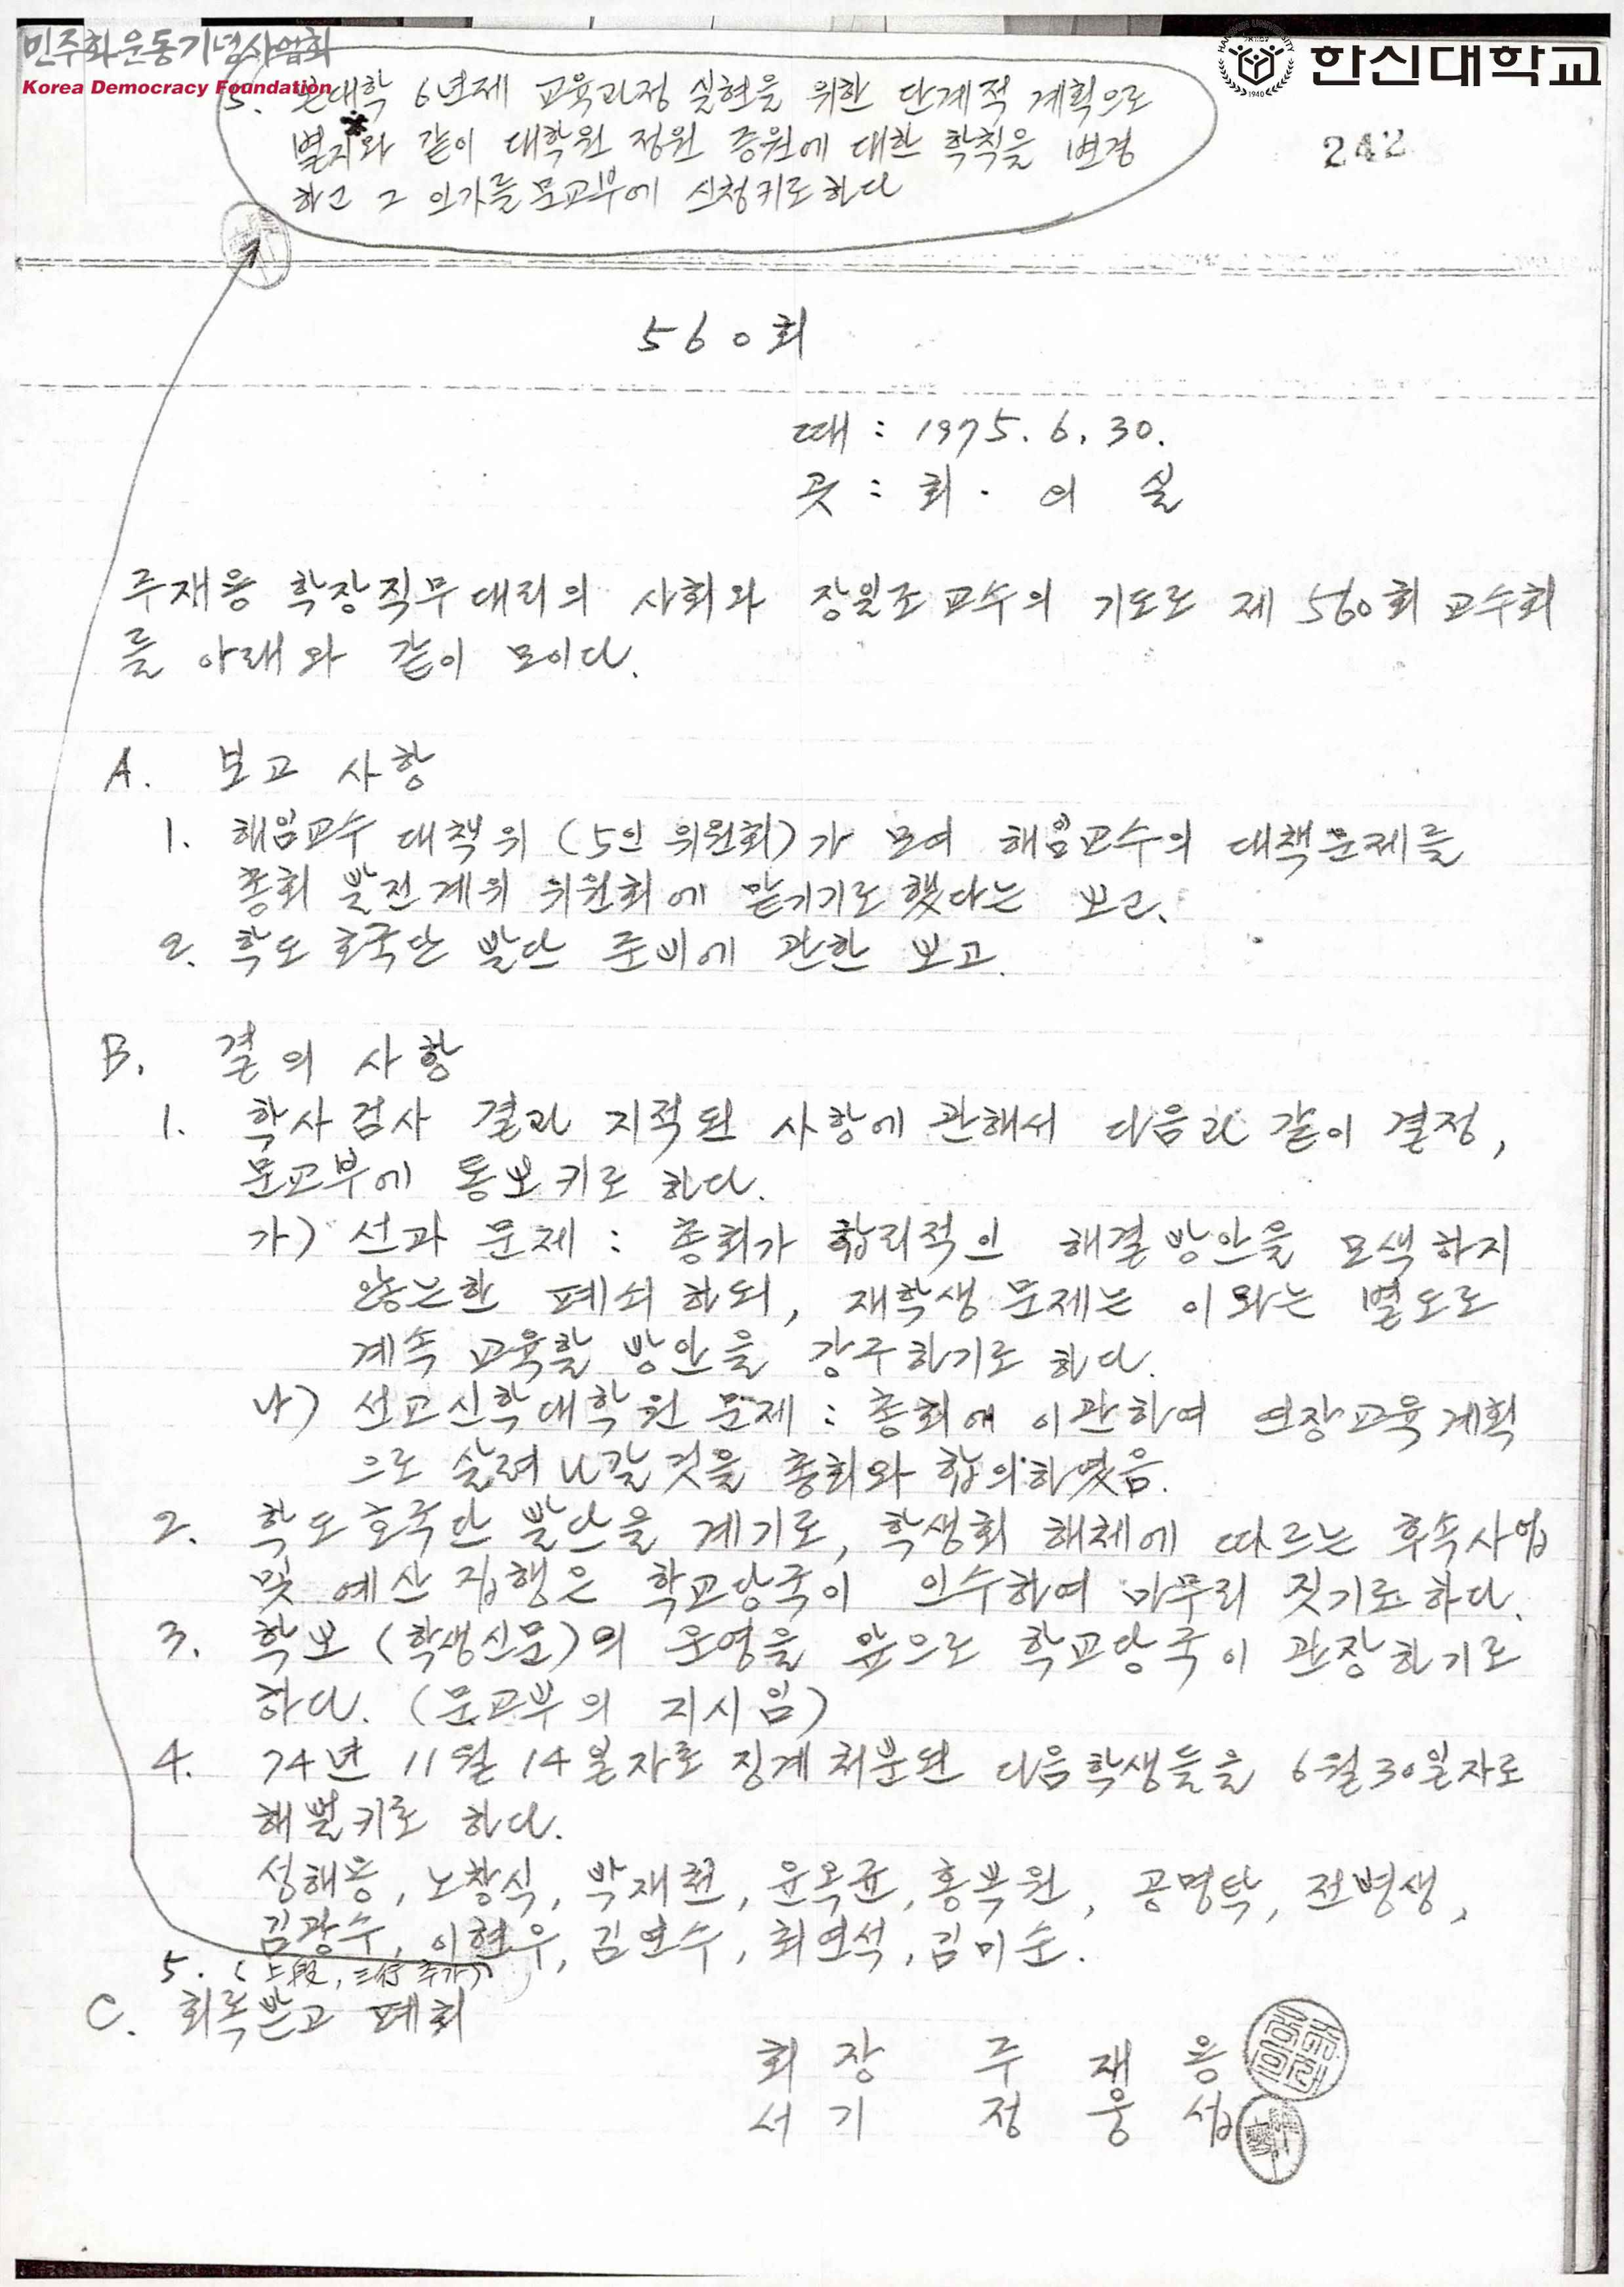 민주화운동기념사업회
Korea Democracy Foundation
한신대학교
242
5. 본대학 6년제 교육과정 실현을 위한 단계적 계획으로
별지와 같이 대학원 정원 증원에 대한 학칙을 변경
하고 그 인가를 문교부에 신청키로 하다
560회
때 : 1975. 6. 30.
곳 : 회 의 실
주재용 학장직무대리의 사회와 장일조 교수의 기도로 제 560회 교수회
를 아래와 같이 모이다.
A. 보고 사항
1. 해임교수 대책위 (5인 위원회)가 모여 해임교수의 대책문제를
총회 발전계위 위원회에 맡기기로 했다는 보고.
2. 학도호국단 발단 준비에 관한 보고.
B. 결의 사항
1. 학사검사 결과 지적된 사항에 관해서 다음과 같이 결정,
문교부에 통보키로 하다.
가) 선과 문제 : 총회가 합리적인 해결방안을 모색하지
않는한 폐쇄하되, 재학생 문제는 이와는 별도로
계속 교육할 방안을 강구하기로 하다.
나) 선교신학대학원 문제 : 총회에 이관하여 연장교육계획
으로 살려 나갈것을 총회와 합의하였음.
2. 학도호국단 발단을 계기로, 학생회 해체에 따르는 후속사업
및 예산 집행은 학교당국이 인수하여 마무리 짓기로 하다.
3. 학보 (학생신문)의 운영을 앞으로 학교당국이 관장하기로
하다. (문교부의 지시임)
4. 74년 11월 14일자로 징계처분된 다음학생들을 6월30일자로
해벌키로 하다.
성해용, 노창식, 박재천, 윤옥균, 홍복원, 공명탁, 전병생,
김광수, 이현우, 김연수, 최연석, 김미순.
5. (上段, 三行 추가)
C. 회록받고 폐회
회장 주재용
서기 정웅섭